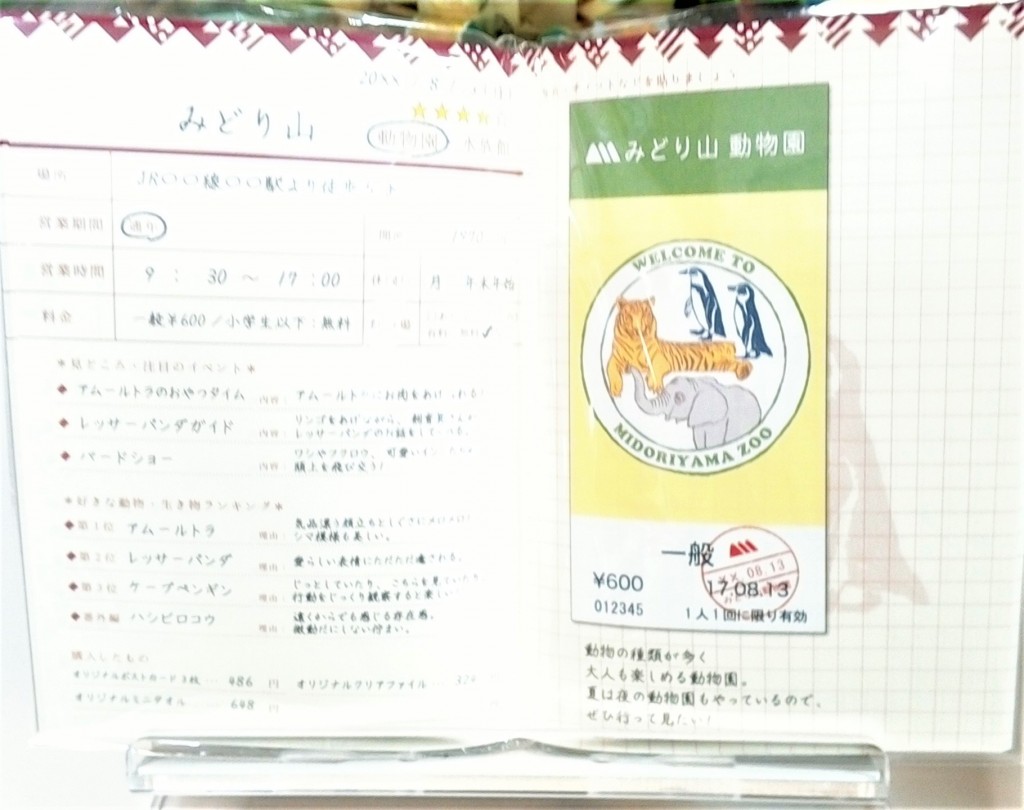 みどり山
動物園 水族館
場所 JR〇〇線〇〇駅より徒歩
営業期間 通年
営業時間 9 : 30 〜 17 : 00 月 年末年始
料金 一般¥600/小学生以下:無料
*見どころ・注目のイベント*
◆ アムールトラのおやつタイム 内容: アムールトラにお肉をあげられる!
◆ レッサーパンダガイド 内容: リンゴをあげながら、飼育員さんが
レッサーパンダのお話をしてくれる。
◆ バードショー 内容: ワシやフクロウ、可愛いインコたちが
頭上を飛び交う!
*好きな動物・生き物ランキング*
◆第1位 アムールトラ 理由:
シマ模様も美しい。
◆第2位 レッサーパンダ 理由: 愛らしい表情にただただ癒される。
◆第3位 ケープペンギン 理由: じっとしていたり、こちらを見ていたり
行動をじっくり観察すると楽しい
◆番外編 ハシビロコウ 理由: 遠くからでも感じる存在感。
微動だにしない佇まい。
購入したもの
オリジナルポストカード3枚 ··· 486 円 オリジナルクリアファイル ···
オリジナルミニタオル ······ 648 円
みどり山 動物園
WELCOME TO
MIDORIYAMA ZOO
一般
¥600
××.08.13
17.08.13
012345
1人1回に限り有効
動物の種類が多く
大人も楽しめる動物園。
夏は夜の動物園もやっているので、
ぜひ行って見たい!